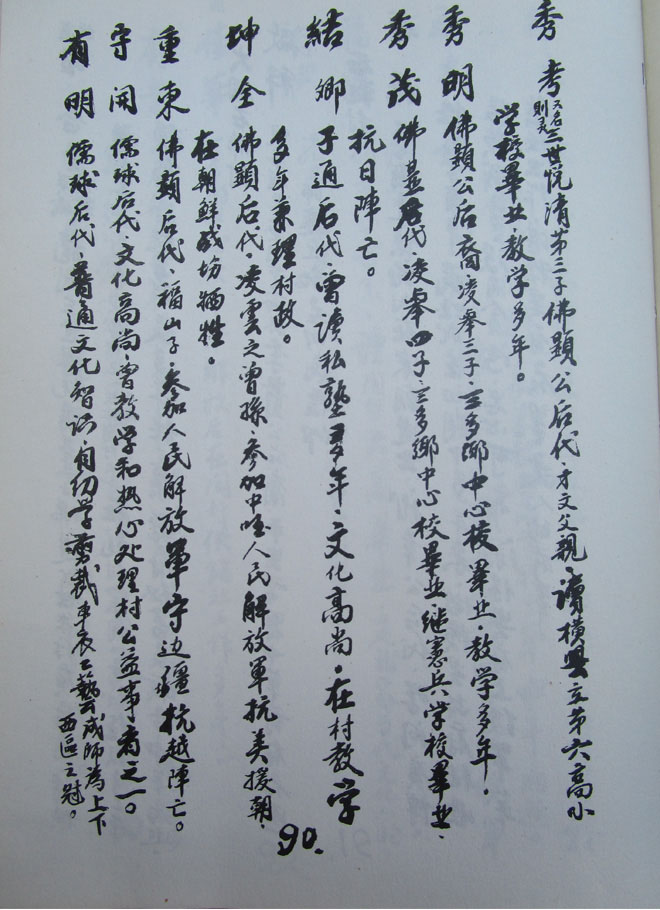 秀考 又名則灵 三世悦清第三子佛顯公后代·才文父親·讀横县立第六高小
学校畢业·教学多年。
秀明 佛顯公后裔·凌举三子·三多鄉中心校畢业·教学多年。
秀茂 佛显后代·凌举四子·三多鄉中心校畢业继憲兵学校畢业·
抗日陣亡。
結卿 子通后代·曾讀私塾多年·文化高尚·在村教学
多年兼理村政。
坤全 佛顯后代·凌雲之曾孫·参加中国人民解放軍抗美援朝·
在朝鮮战场牺牲。
重東 佛顯后代·福山子·参加人民解放軍守边疆抗越陣亡。
守開 儒球后代·文化高尚·曾教学和热心处理村公益事者之一。
有明 儒球后代·普通文化智识·自幼学剪裁車衣工藝成師為上下
西區之冠。
90.